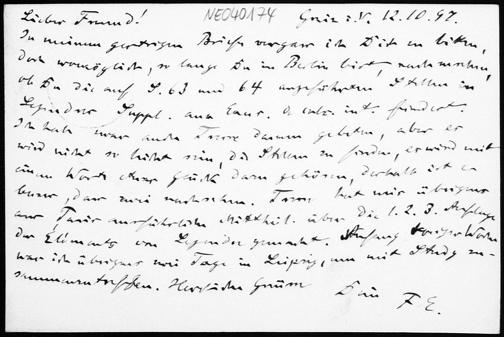 Lieber Freund!
NE040174
Graz i. V. 12.10.97.
In meinem gestrigen Briefe vergass ich Dich zu bitten,
doch womöglich, so lange Du in Berlin bist, nachzusehen,
ob Du die auf S. 63 und 64 angeführten Stellen in
Legendres Suppl. zum Exerc. d. calc. int. findest.
Ich habe zwar auch darum gebeten, aber es
wird nicht so leicht sein, die Stellen zu finden, es wird mit
einem Worte etwas Glück dazu gehören, deshalb ist es
besser, dass zwei nachsehen. hat mir übrigens
aus Paris ausführliche Mittheil. über die 1. 2. 3. Auflage
der Eléments von Legendre gemacht. Anfang voriger Woche
war ich übrigens zwei Tage in Leipzig, um mit Study zu-
sammenzutreffen. Herzliche Grüsse
Dein F E.